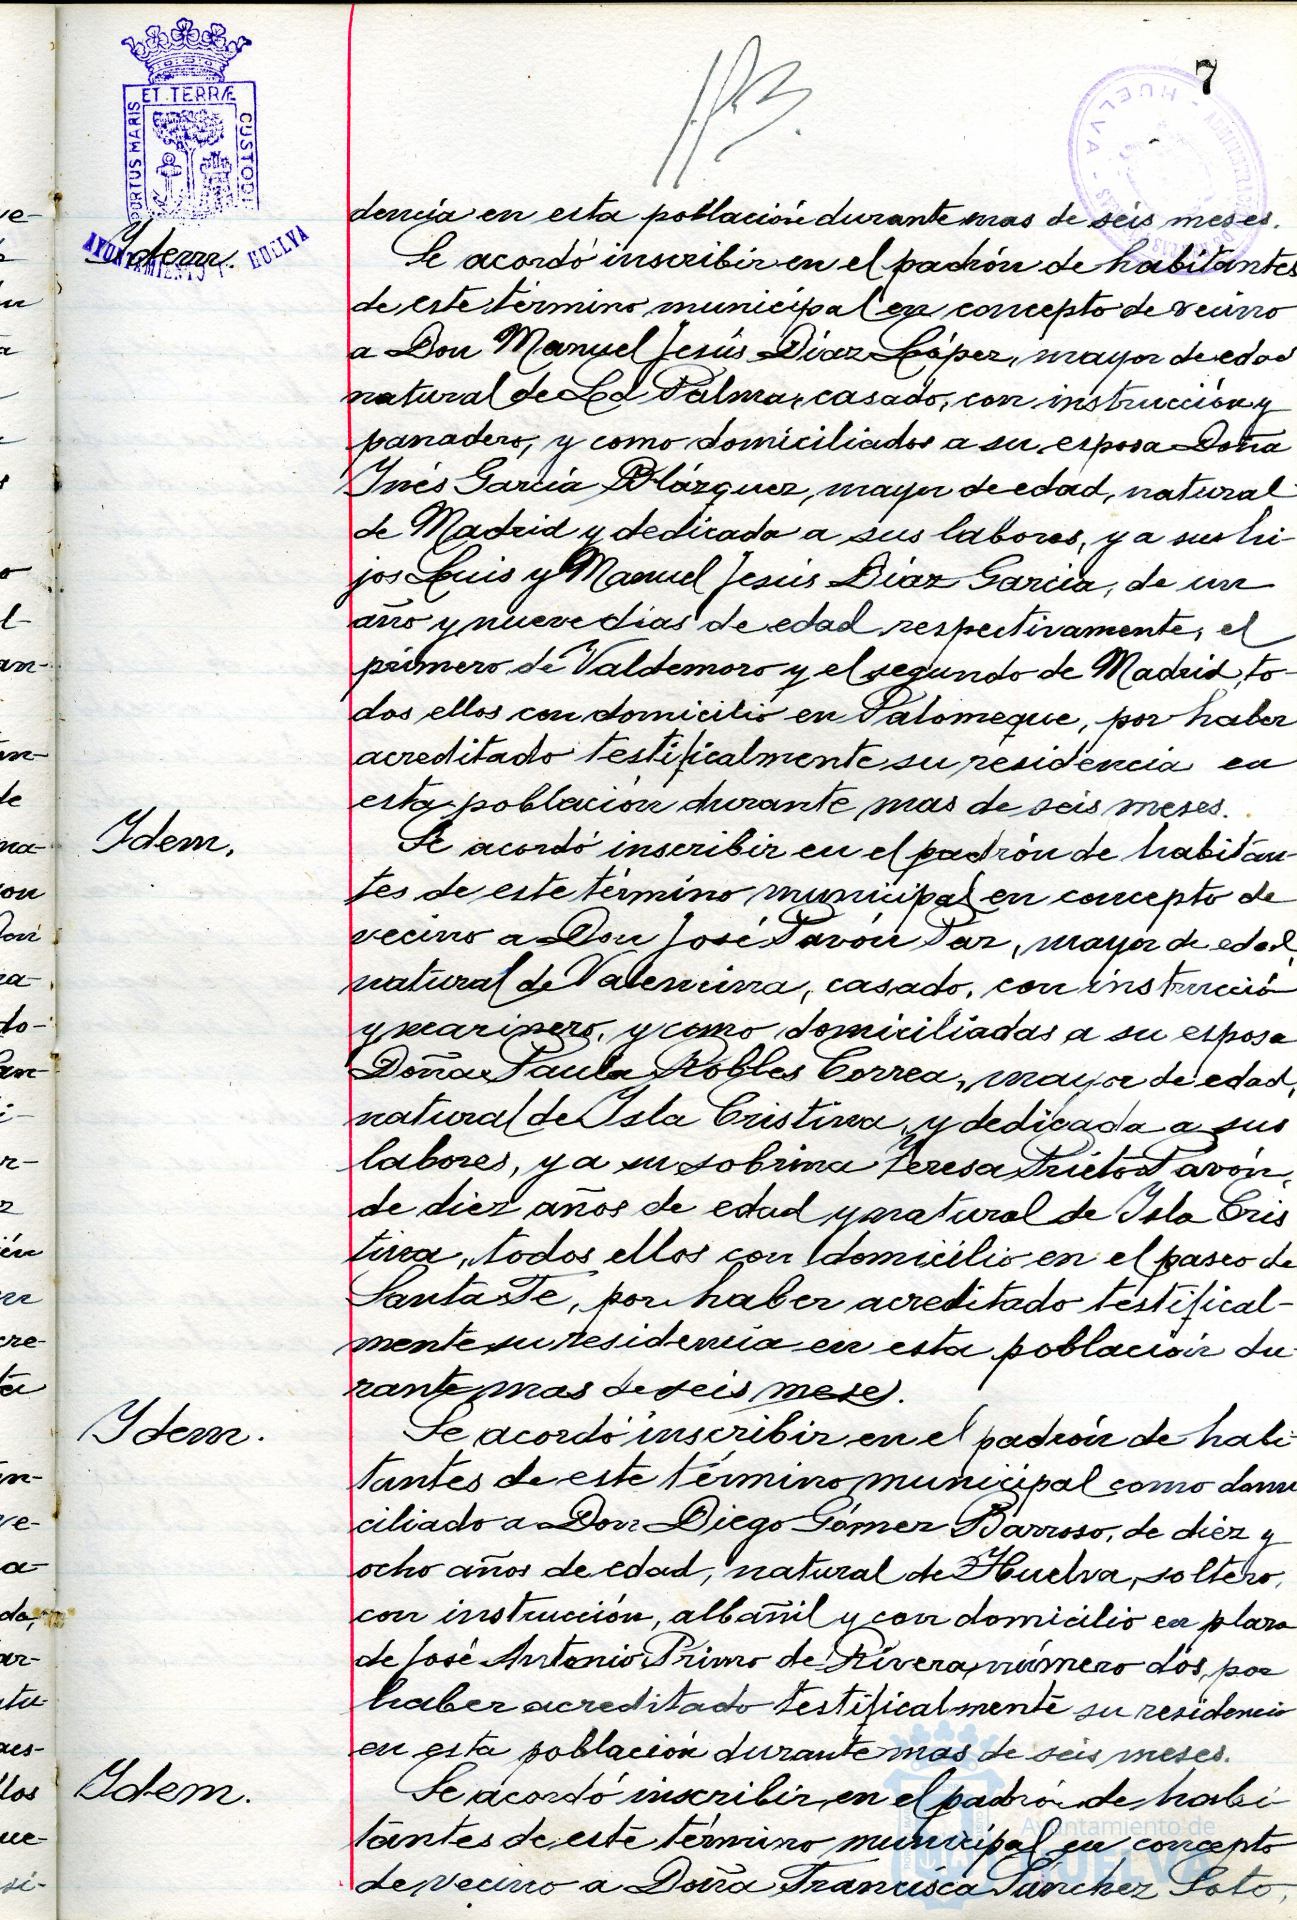 7
ET TERRÆ
PORTUS MARIS
CUSTODI
AYUNTAMIENTO D. HUELVA
HUELVA
dencia en esta población durante mas de seis meses.
Idem.
Se acordó inscribir en el padrón de habitantes
de este término municipal en concepto de vecino
a Don Manuel Jesús Díaz López, mayor de edad
natural de La Palma, casado, con instrucción y
panadero, y como domiciliados a su esposa Doña
Inés García Blázquez, mayor de edad, natural
de Madrid y dedicada a sus labores, y a sus hi-
jos Luis y Manuel Jesús Díaz García, de un
año y nueve días de edad respectivamente, el
primero de Valdemoro y el segundo de Madrid, to-
dos ellos con domicilio en Palomeque, por haber
acreditado testificalmente su residencia en
esta población durante mas de seis meses.
Idem.
Se acordó inscribir en el padrón de habitan-
tes de este término municipal en concepto de
vecino a Don José Pavón Paz, mayor de edad,
natural de Valencina, casado, con instrucció
y marinero, y como domiciliadas a su esposa
Doña Paula Robles Correa, mayor de edad,
natural de Isla Cristina, y dedicada a sus
labores, y a su sobrina Teresa Prieto Pavón,
de diez años de edad y natural de Isla Cris
tina, todos ellos con domicilio en el paseo de
Santa Fe, por haber acreditado testifical-
mente su residencia en esta población du-
rante mas de seis mese).
Idem.
Se acordó inscribir en el padrón de habi-
tantes de este término municipal como domi
ciliado a Don Diego Gómez Barroso, de diez y
ocho años de edad, natural de Huelva, soltero,
con instrucción, albañil y con domicilio en plaza
de José Antonio Primo de Rivera, número dos, por
haber acreditado testificalmente su residencia
en esta población durante mas de seis meses.
Idem.
Se acordó inscribir en el padrón de habi-
tantes de este término municipal en concepto
de vecino a Doña Francisca Sánchez Soto,
Ayuntamiento de
HUELVA